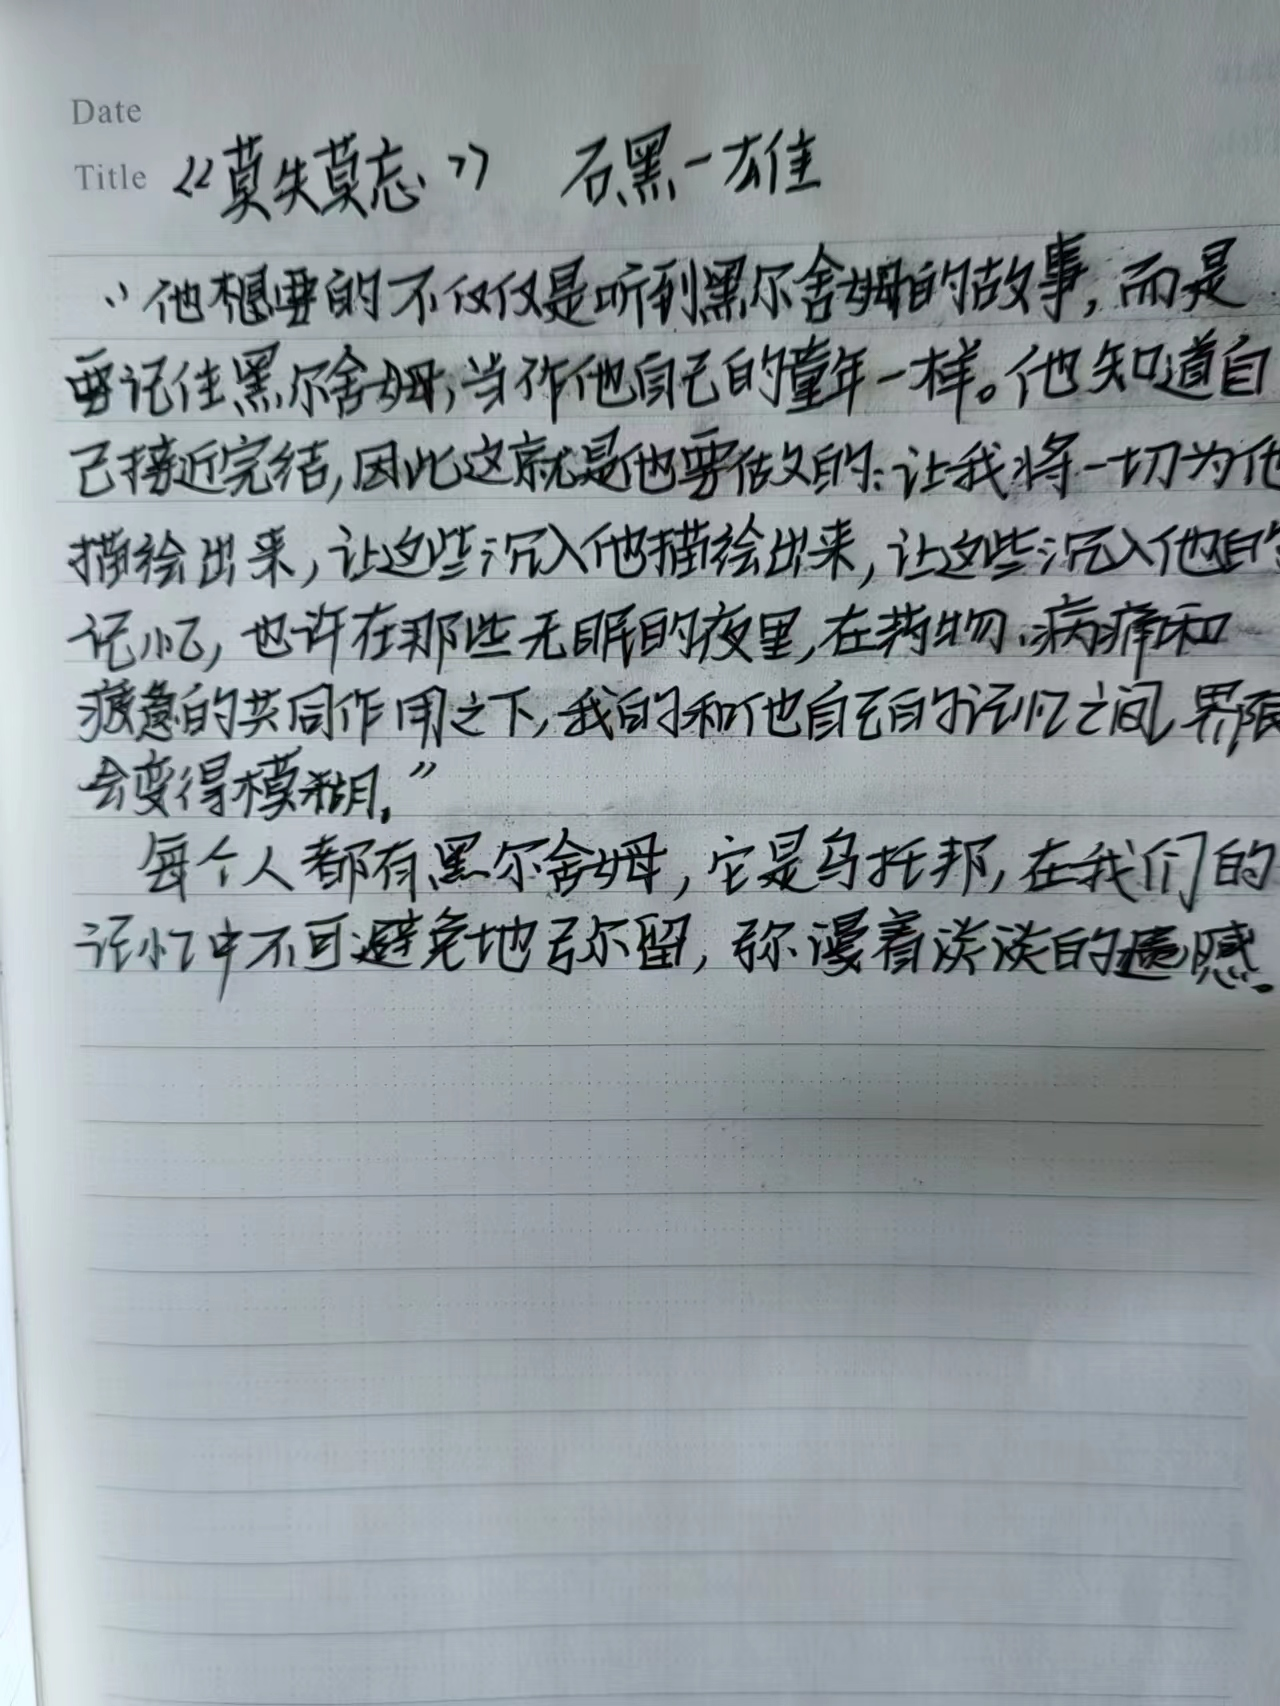 Date
Title 《莫失莫忘》 石黑一雄
“他想要的不仅仅是听到黑尔舍姆的故事，而是
要记住黑尔舍姆，当作他自己的童年一样。他知道自
己接近完结，因此这就是他要做的：让我将一切为他
描绘出来，让这些沉入他描绘出来，让这些沉入他的
记忆，也许在那些无眠的夜里，在药物、病痛和
疲惫的共同作用之下，我的和他自己的记忆之间，界限
会变得模糊。”
每个人都有黑尔舍姆，它是乌托邦，在我们的
记忆中不可避免地弥留，弥漫着淡淡的遗憾。